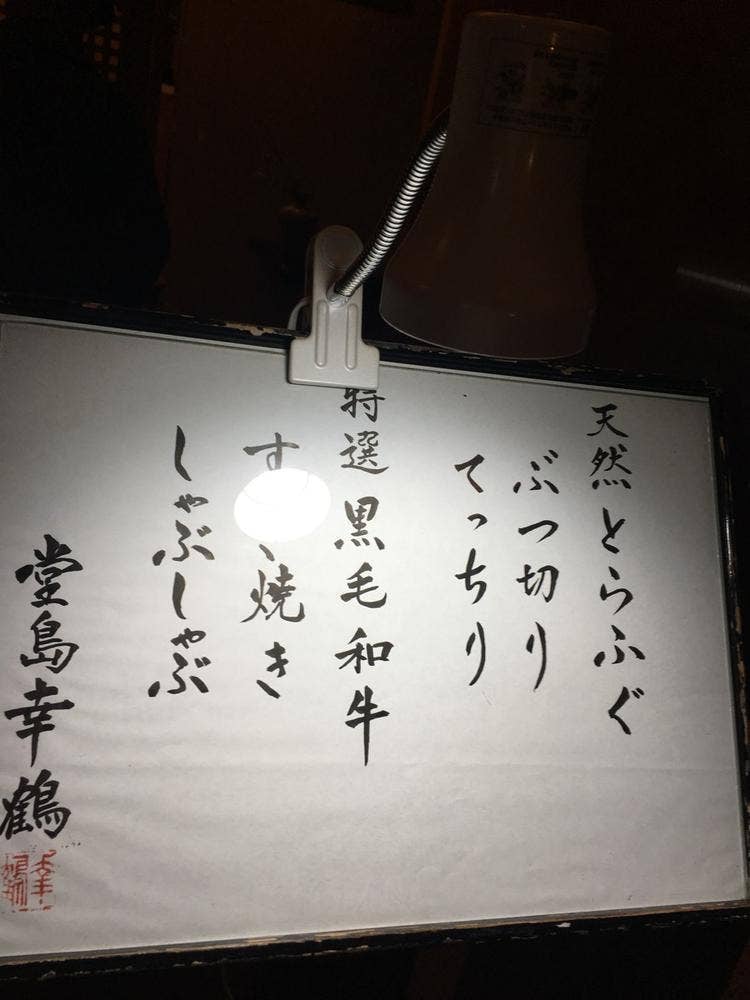 天然とらふぐ
ぶつ切り
てっちり
特選 黒毛和牛
す焼き
しゃぶしゃぶ
堂島幸鶴